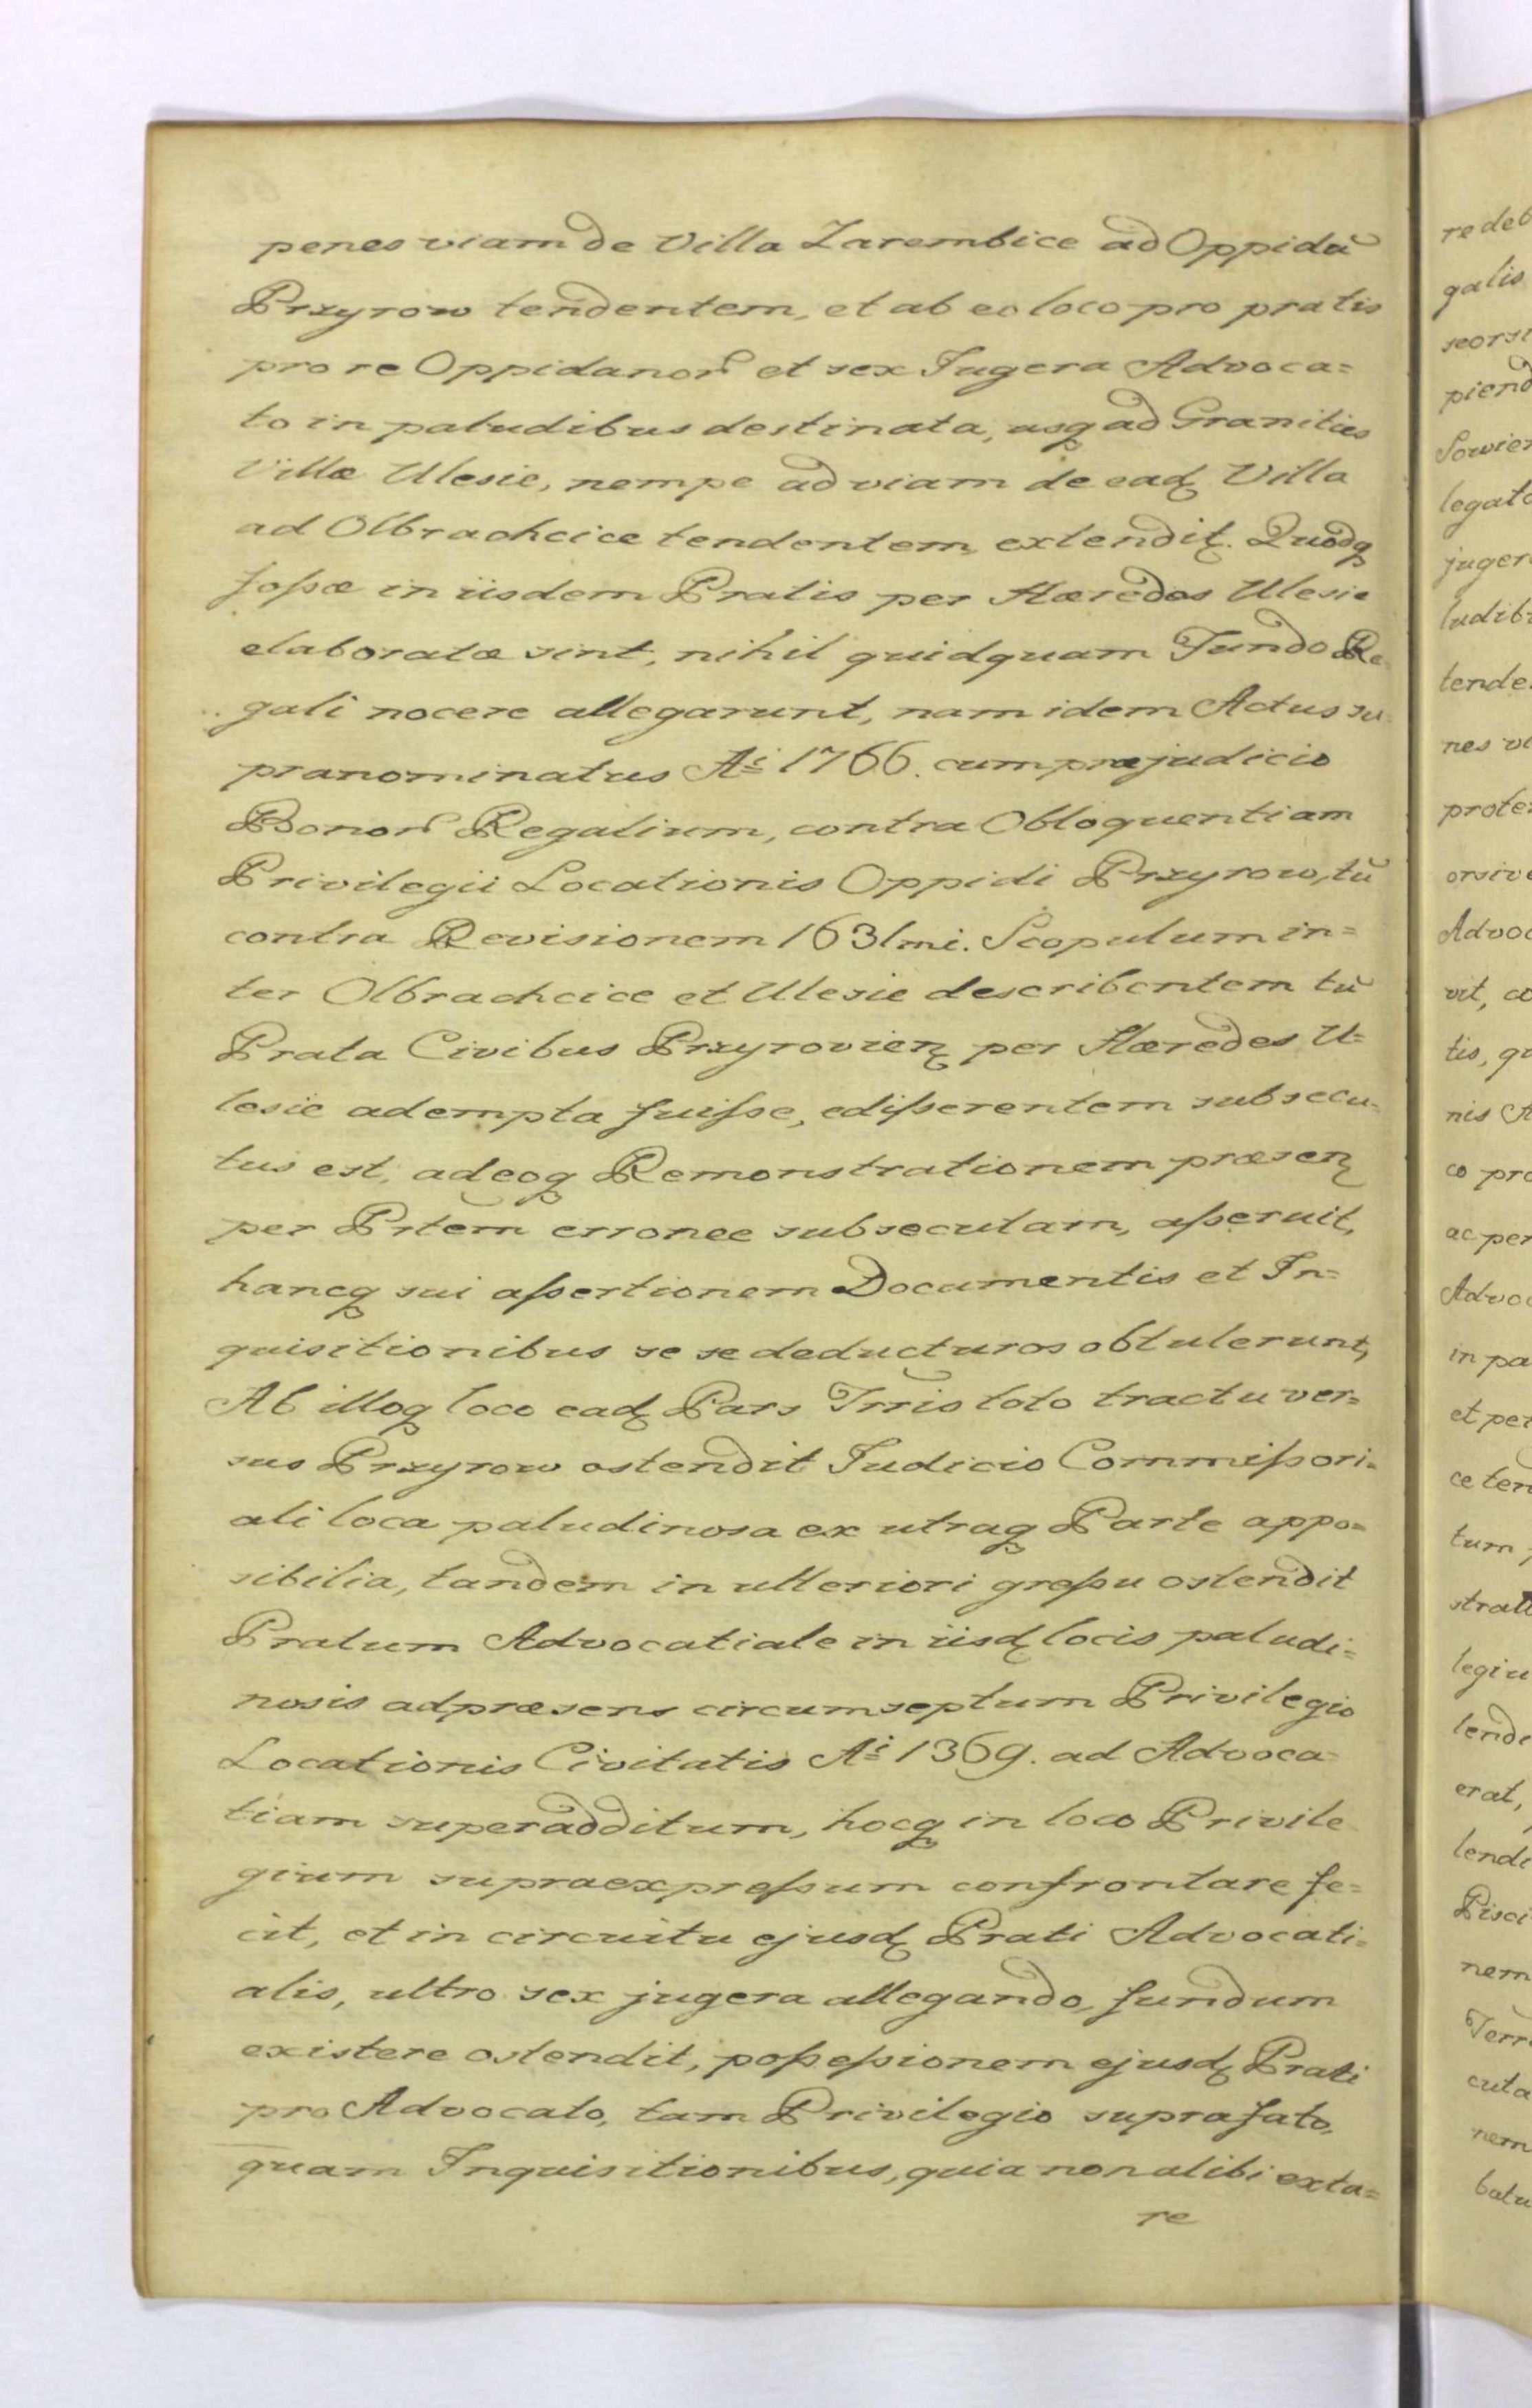 penes viam de Villa Zarembice ad Oppidū
Przyrow tendentem, et ab eo loco pro pratis
pro re Oppidanor et sex Jugera Advoca=
to in paludibus destinata, usq ad Granities
Villæ Ulesie, nempe ad viam de ead Villa
ad Olbrachcice tendentem extendit. Quodq
foſsæ in iisdem Pratis per Hæredes Ulesie
elaboratæ sint, nihil quidquam Fundo Re=
gali nocere allegarunt, nam idem Actus su=
pranominatus Ai 1766. cum præjudicio
Bonor Regalium, contra Obloquentiam
Privilegii Locationis Oppidi Przyrow, tū
contra Revisionem 1631mi. Scopulum in=
ter Olbrachcice et Ulesie describentem tū
Prata Civibus Przyrovien per Hæredes U=
lesie adempta fuiſse, ediſserentem subsecu=
tus est, adeoq Remonstrationem præsen
per Prtem erronee subsecutam, aſseruit,
hancq sui aſsertionem Documentis et In=
quisitionibus se se deducturos obtulerunt,
Ab illoq loco ead Pars Trris toto tractu ver=
sus Przyrow ostendit Judicio Commiſsori=
ali loca paludinosa ex utraq Parte appo=
sibilia, tandem in ulteriori greſsu ostendit
Pratum Advocatiale in iisd locis paludi=
nosis ad præsens circumseptum Privilegio
Locationis Civitatis Ai 1369. ad Advoca=
tiam superadditum, hocq in loco Privile
gium supraexpreſsum confrontare fe=
cit, et in circuitu ejusd Prati Advocati=
alis, ultro sex jugera allegando, fundum
existere ostendit, poſseſsionem ejusd Prati
pro Advocato, tam Privilegio suprafato,
quam Inquisitionibus, quia non alibi exta=
re
redeb
galis
seorsi
piend
Sowier
legato
juger
ludib
tende
nes vi
prote
orsive
Advoc
vit, a
tis, qu
nis A
co pro
ac per
Advoc
in pa
et per
ce ten
tum,
strati
legiu
lende
erat,
lendi
Pisci
nem
Terr
cuta
nem
batu